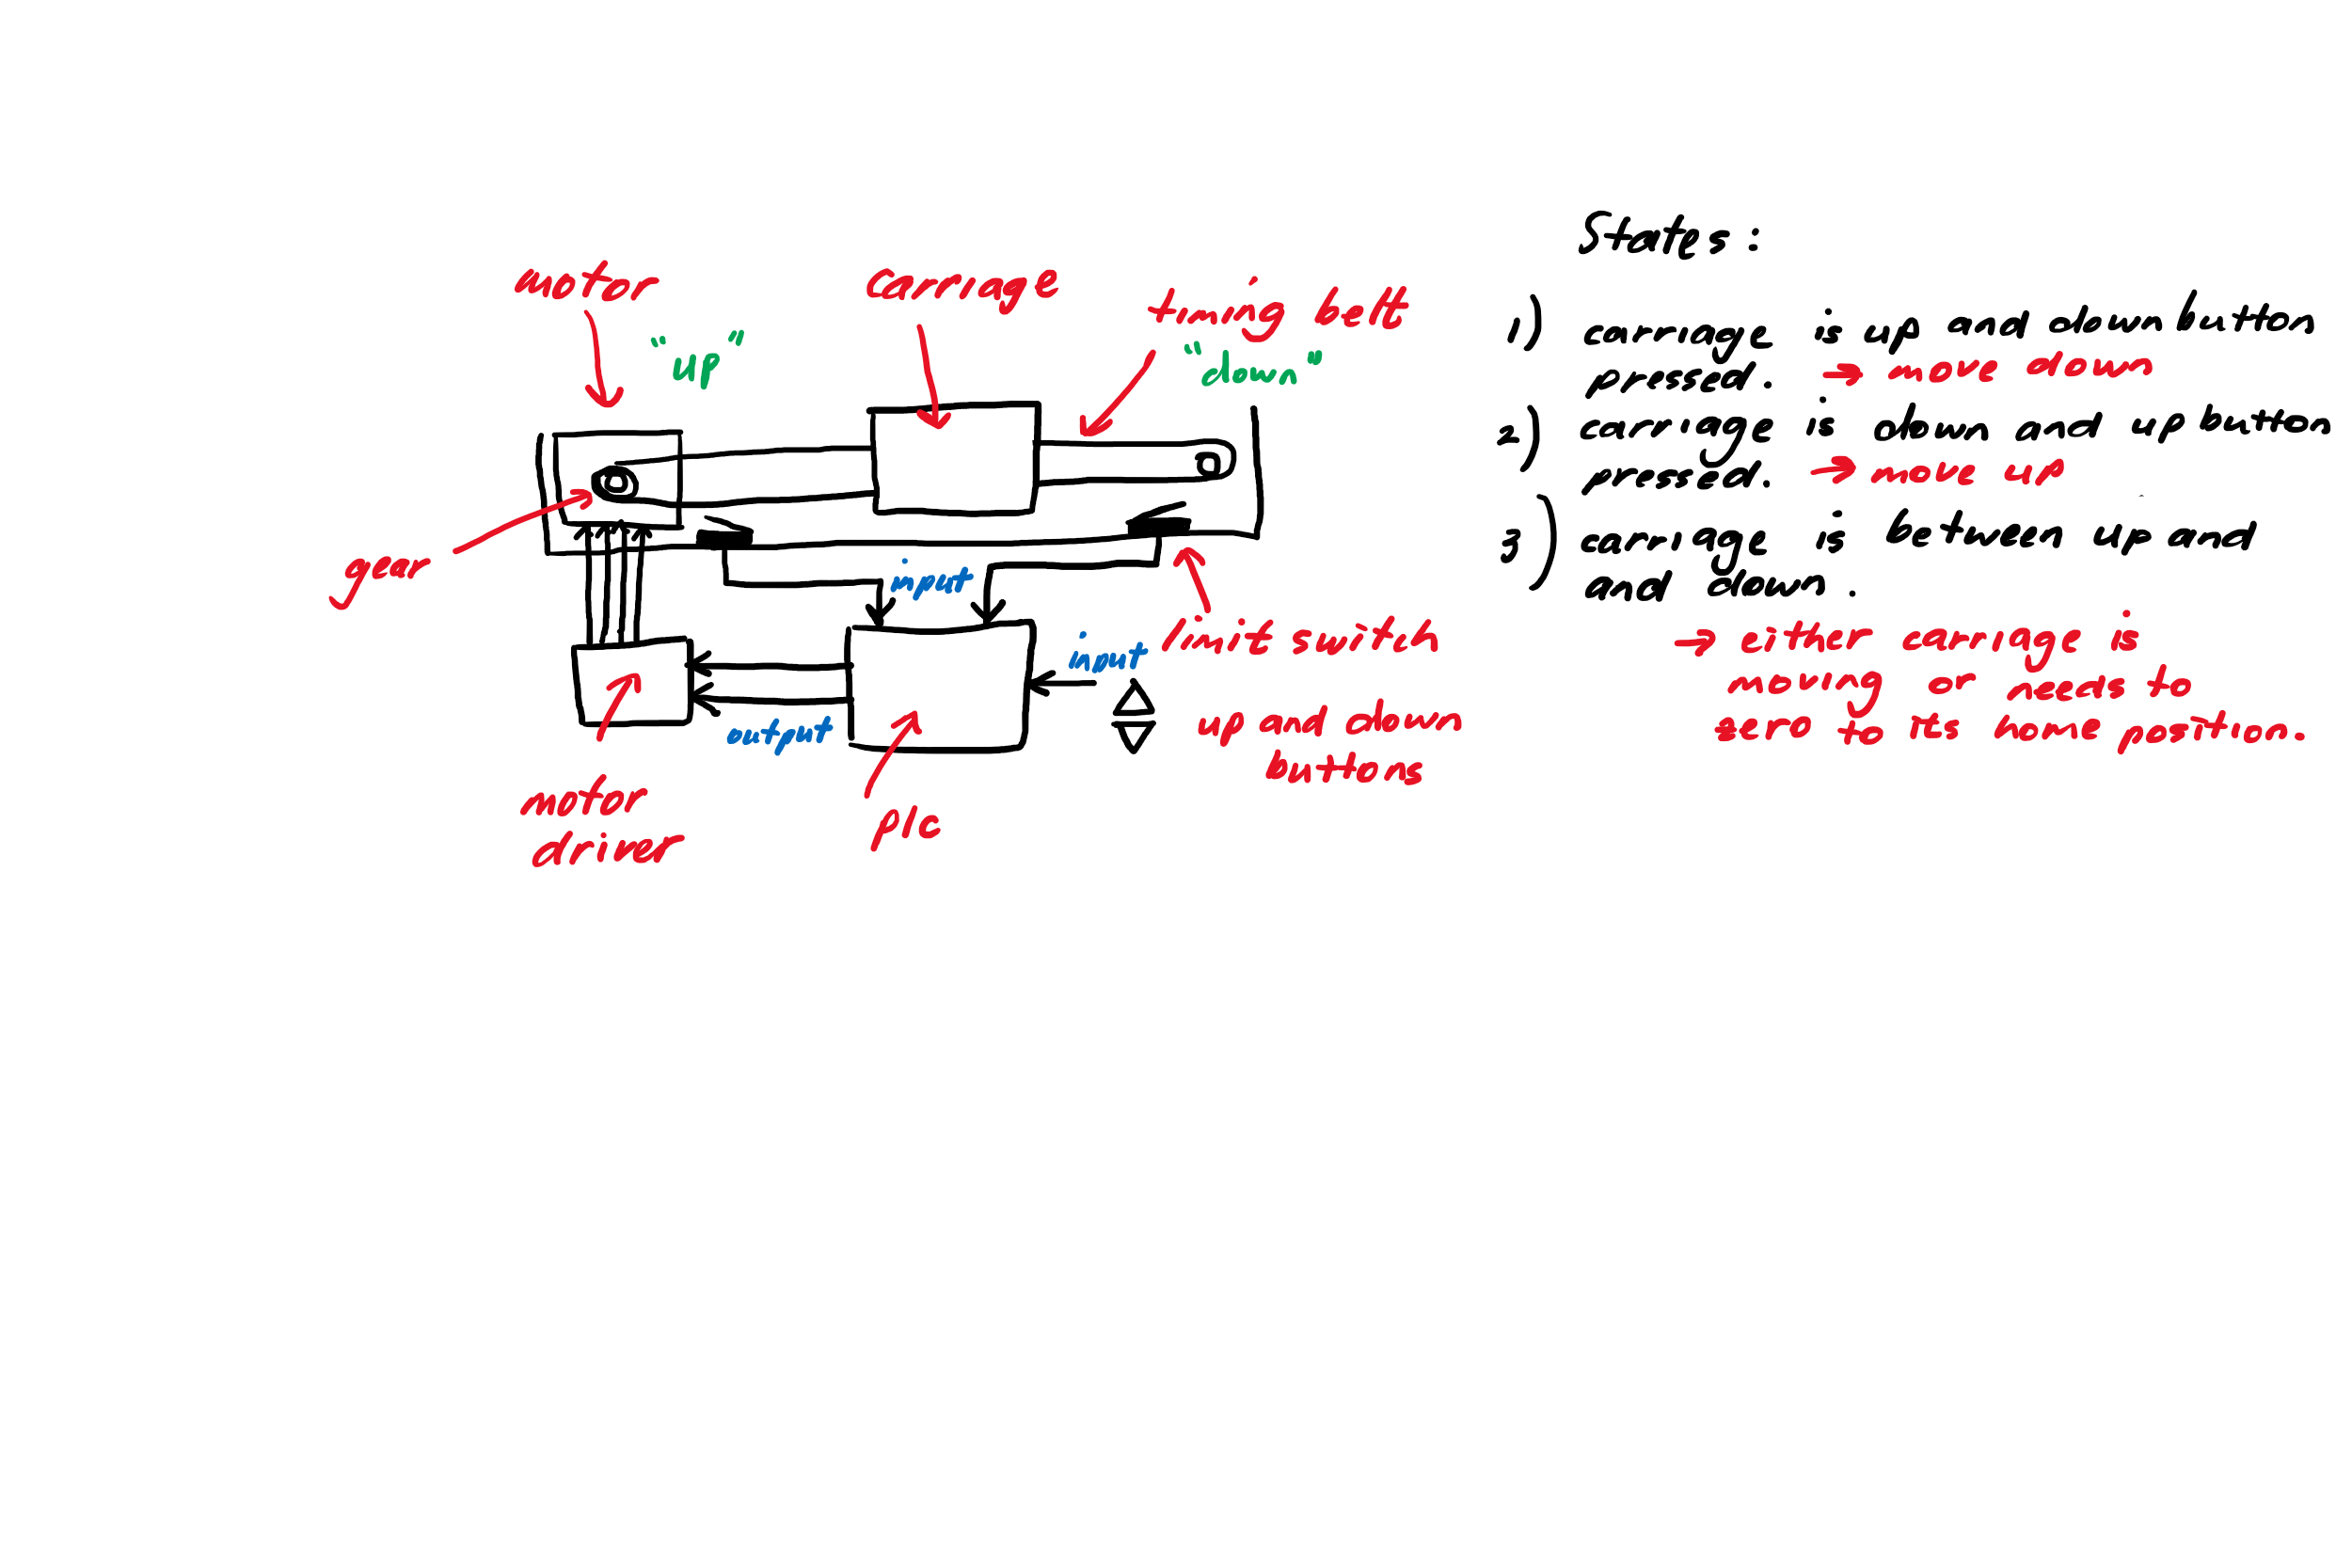 motor
carriage
timing belt
"up"
"down"
gear
input
input
limit switch
output
up and down
buttons
motor
driver
plc
States:
1) carriage is up and down button
pressed. → move down
2) carriage is down and up button
pressed. → move up
3) carriage is between up and
and down.
→ either carriage is
moving or needs to
zero to its home position.